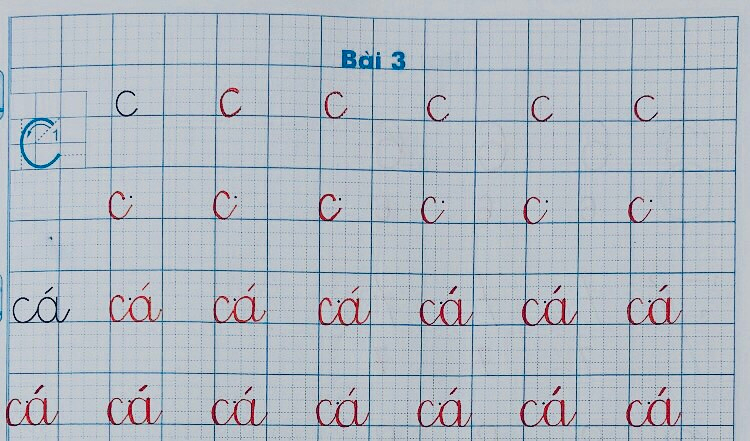 Bài 3
C 1 c c c c c c
c c c c c c
cá cá cá cá cá cá cá
cá cá cá cá cá cá cá